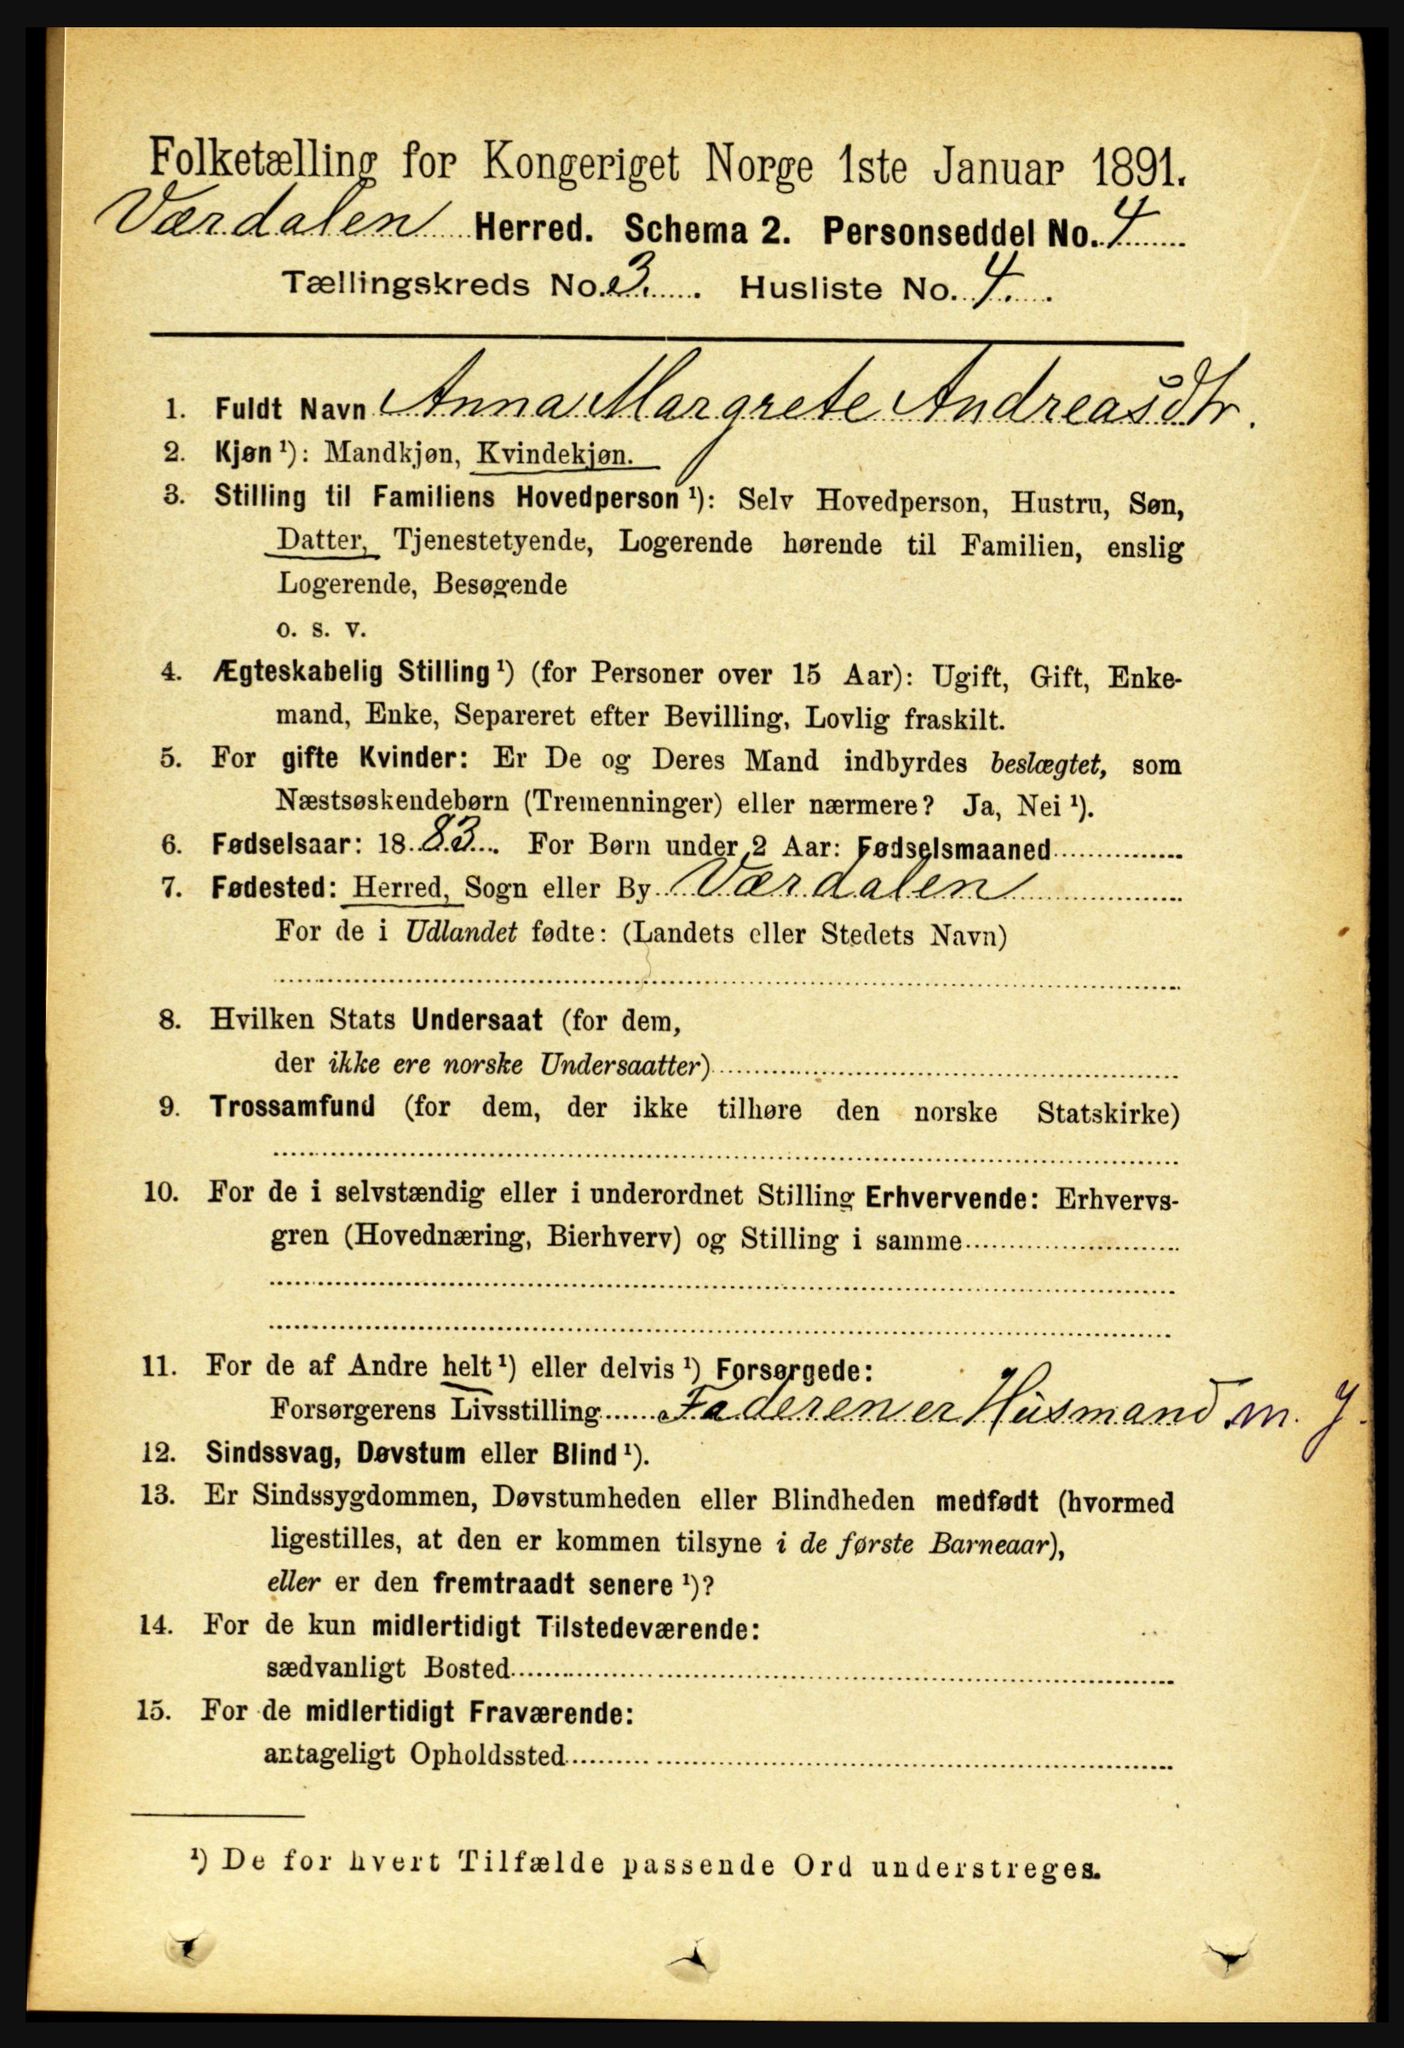 Folketælling for Kongeriget Norge 1ste Januar 1891.
Værdalen Herred. Schema 2. Personseddel No. 4
Tællingskreds No. 3. Husliste No. 4.
1. Fuldt Navn Anna Margrete Andreasdtr.
2. Kjøn ¹): Mandkjøn, Kvindekjøn.
3. Stilling til Familiens Hovedperson ¹): Selv Hovedperson, Hustru, Søn,
Datter, Tjenestetyende, Logerende hørende til Familien, enslig
Logerende, Besøgende
o. s. v.
4. Ægteskabelig Stilling ¹) (for Personer over 15 Aar): Ugift, Gift, Enke-
mand, Enke, Separeret efter Bevilling, Lovlig fraskilt.
5. For gifte Kvinder: Er De og Deres Mand indbyrdes beslægtet, som
Næstsøskendebørn (Tremenninger) eller nærmere? Ja, Nei ¹).
6. Fødselsaar: 1883. For Børn under 2 Aar: Fødselsmaaned
7. Fødested: Herred, Sogn eller By Værdalen
For de i Udlandet fødte: (Landets eller Stedets Navn)
8. Hvilken Stats Undersaat (for dem,
der ikke ere norske Undersaatter)
9. Trossamfund (for dem, der ikke tilhøre den norske Statskirke)
10. For de i selvstændig eller i underordnet Stilling Erhvervende: Erhvervs-
gren (Hovednæring, Bierhverv) og Stilling i samme
11. For de af Andre helt ¹) eller delvis ¹) Forsørgede:
Forsørgerens Livsstilling Faderen er Husmand m. J.
12. Sindssvag, Døvstum eller Blind ¹).
13. Er Sindssygdommen, Døvstumheden eller Blindheden medfødt (hvormed
ligestilles, at den er kommen tilsyne i de første Barneaar),
eller er den fremtraadt senere ¹)?
14. For de kun midlertidigt Tilstedeværende:
sædvanligt Bosted
15. For de midlertidigt Fraværende:
antageligt Opholdssted
¹) De for hvert Tilfælde passende Ord understreges.